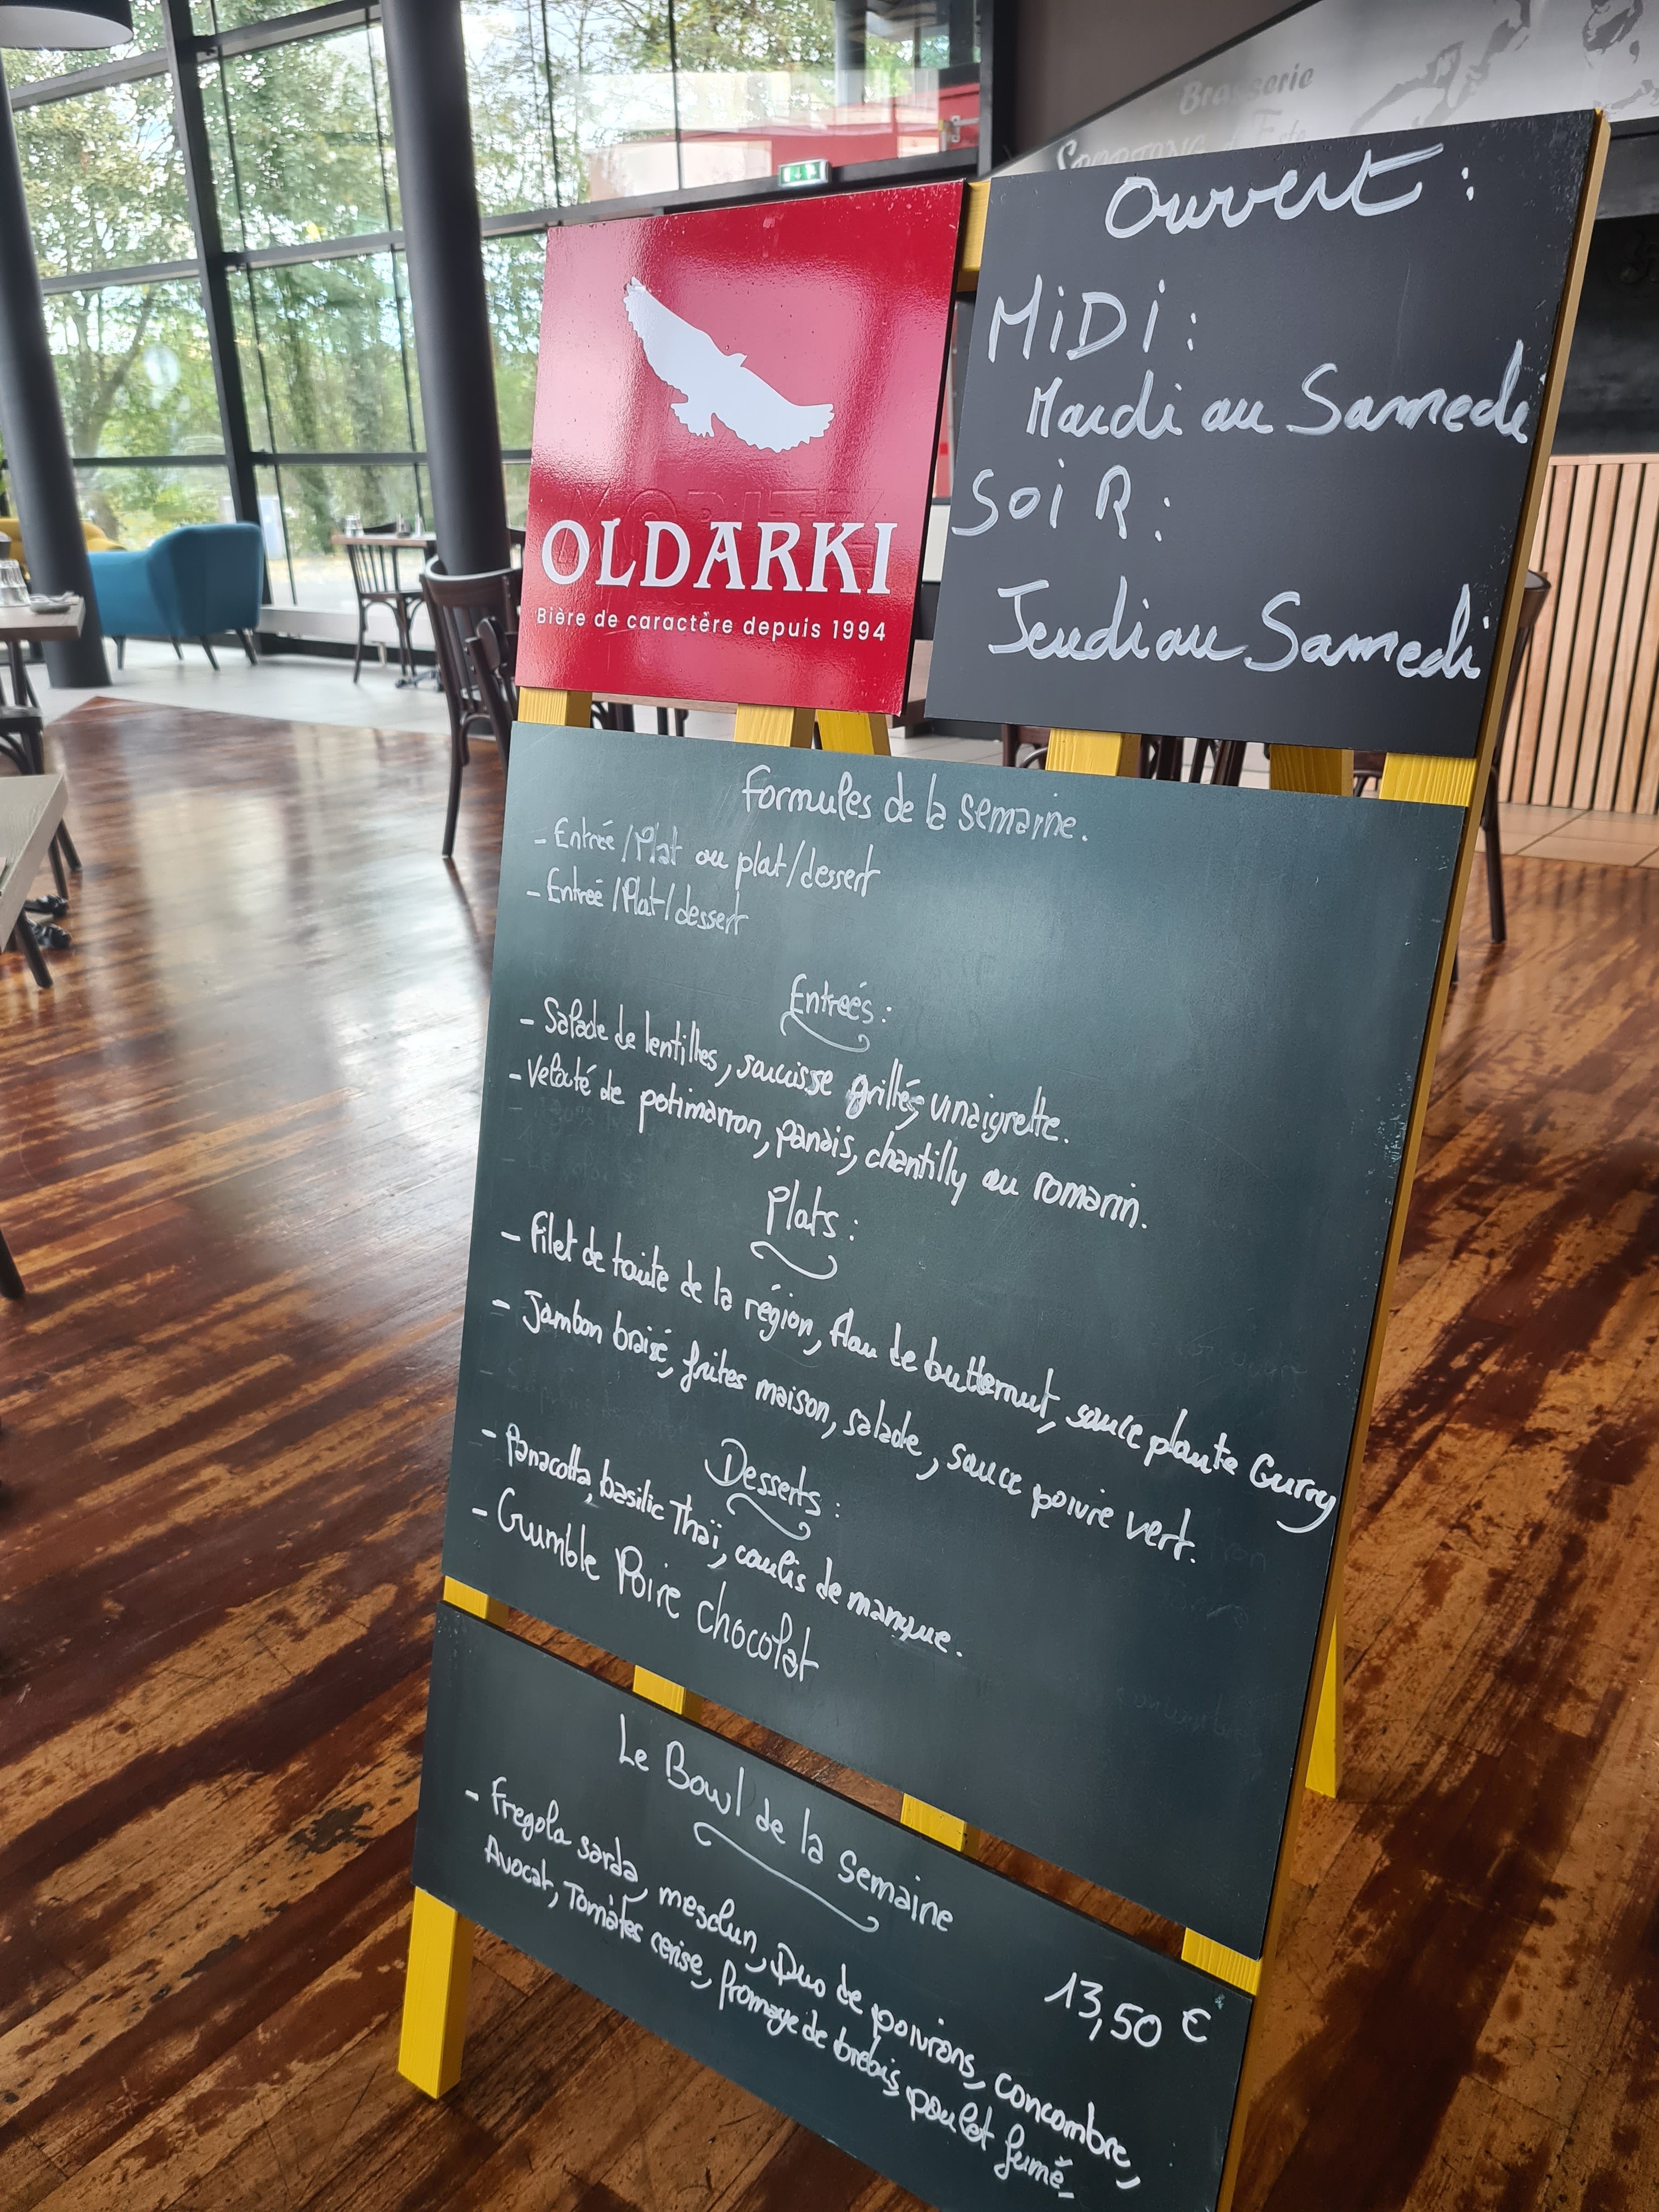 Brasserie
Ouvert :
MiDi :
Mardi au Samedi
SoiR :
Jeudi au Samedi
OLDARKI
Bière de caractère depuis 1994
Formules de la semaine.
- Entrée/Plat ou plat/dessert
- Entreé/Plat/dessert
Entreés :
- Salade de lentilles, saucisse grillés vinaigrette.
- Velouté de potimarron, panais, chantilly au romarin.
Plats :
- Filet de truite de la région, flan de butternut, sauce plante Curry
- Jambon braisé, frites maison, salade, sauce poivre vert.
Desserts :
- Panacotta, basilic Thaï, coulis de mangue.
- Crumble Poire chocolat
Le Bowl de la Semaine
13,50 €
- Fregola sarda, mesclun, Duo de poivrons, concombre,
Avocat, Tomates cerise, fromage de brebis, poulet fumé